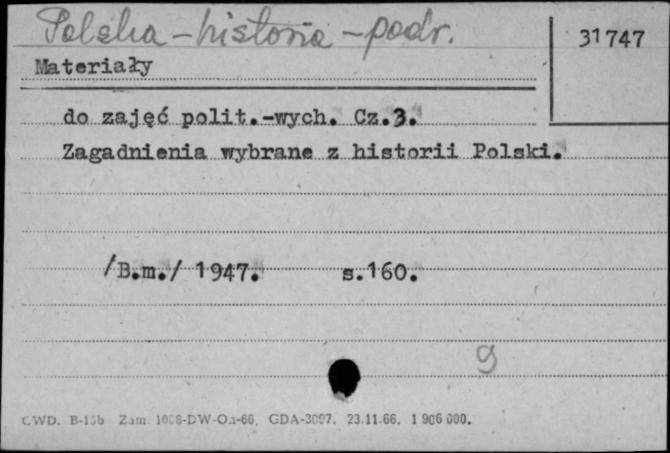 Polska - historia - podr.
31747
Materiały
do zajęć polit.-wych. Cz.3.
Zagadnienia wybrane z historii Polski.
/B.m./ 1947. s.160.
9
CWD. B-15b Zam. GDA-3097. 23.11.66. 1 906 000.